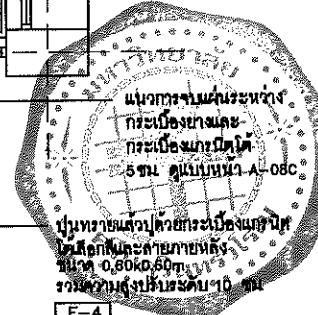 มหาวิทยาลัย
แนวการจบแผ่นระหว่าง
กระเบื้องยางและ
กระเบื้องแกรนิตโต้
5ซม ดูแบบหน้า A-08C
ปูนทรายแล้วปูด้วยกระเบื้องแกรนิต
โตเลือกสีและลายภายหลัง
ขนาด 0.60x0.60m
รวมความสูงปรับระดับ 10 ซม
F-4